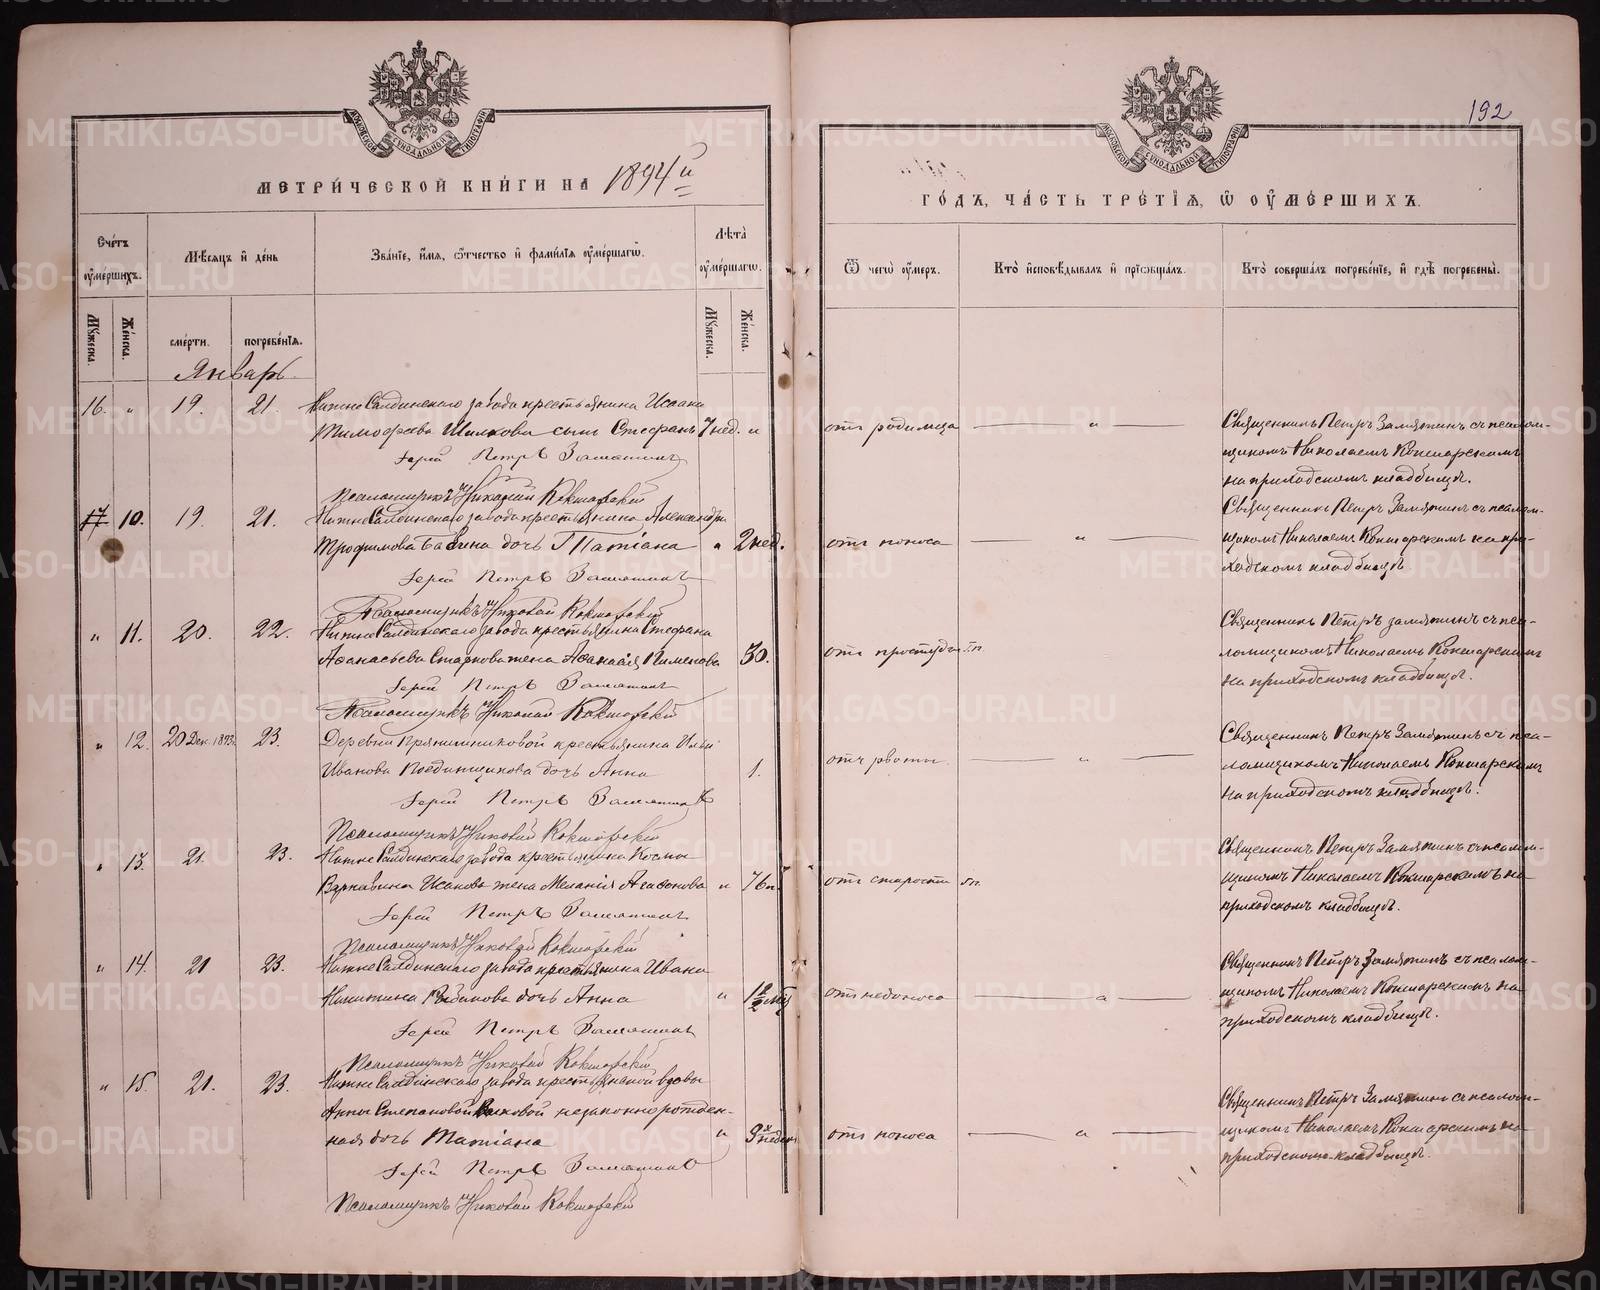 192
МЕТРИЧЕСКОЙ КНИГИ НА 1894й
ГОДЪ, ЧАСТЬ ТРЕТІЯ, Ѿ ОУМЕРШИХЪ.
Счетъ оумершихъ.
Мѣсяцъ и день
Званіе, имя, отчество и фамилія оумершагѡ.
Лѣта оумершагѡ.
Ѿ чегѡ оумеръ.
Кто исповѣдывалъ и пріобщалъ.
Кто совершалъ погребеніе, и гдѣ погребены.
Мужеска.
Женска.
смерти.
погребенія.
Мужеска.
Женска.
Январь
16. " 19. 21. Нижне Салдинскаго завода крестьянина Исаака
Тимофѣева Шилкова сынъ Стефанъ 7 нед. "
отъ родимца
Священникъ Петръ Замятинъ съ псалом-
щикомъ Николаемъ
на приходскомъ кладбищѣ.
Іерей Петръ Замятинъ
Псаломщикъ Николай
17 10. 19. 21. Нижне Салдинскаго завода крестьянина Александра
Трофимова дочь Татіана " 2 нед.
отъ поноса
Священникъ Петръ Замятинъ съ псалом-
щикомъ Николаемъ на при-
ходскомъ кладбищѣ
Іерей Петръ Замятинъ
Псаломщикъ Николай
" 11. 20. 22. Нижне Салдинскаго завода крестьянина Стефана
Афанасьева Старкова жена Афанасія Пименова 30.
отъ простуды
Священникъ Петръ Замятинъ съ пса-
ломщикомъ Николаемъ
на приходскомъ кладбищѣ.
Іерей Петръ Замятинъ
Псаломщикъ Николай
" 12. 20 Дек. 1893. 23. Деревни Прянишниковой крестьянина Ильи
Иванова Поединщикова дочь Анна 1.
отъ рвоты
Священникъ Петръ Замятинъ съ пса-
ломщикомъ Николаемъ
на приходскомъ кладбищѣ.
Іерей Петръ Замятинъ
Псаломщикъ Николай
" 13. 21. 23. Нижне Салдинскаго завода крестьянина Космы
Исакова жена Меланія Агафонова " 76
отъ старости
Священникъ Петръ Замятинъ съ псалом-
щикомъ Николаемъ на
приходскомъ кладбищѣ.
Іерей Петръ Замятинъ
Псаломщикъ Николай
" 14. 21 23. Нижне Салдинскаго завода крестьянина Ивана
Никитина дочь Анна "
Священникъ Петръ Замятинъ съ псалом-
щикомъ Николаемъ на
приходскомъ кладбищѣ.
Іерей Петръ Замятинъ
Псаломщикъ Николай
" 15. 21. 23. Нижне Салдинскаго завода крестьянской вдовы
Анны Степановой незаконнорожден-
ная дочь Татіана " 9
отъ поноса
Священникъ Петръ Замятинъ съ псалом-
щикомъ Николаемъ на
приходскомъ кладбищѣ.
Іерей Петръ Замятинъ
Псаломщикъ Николай
METRIKI.GASO-URAL.RU